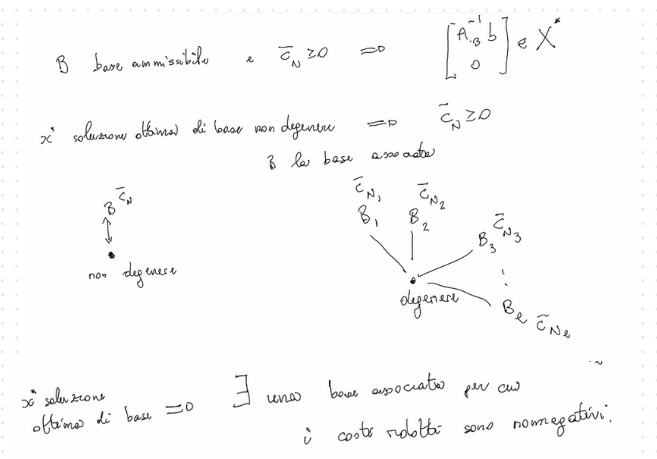 B base ammissibile e c̄_N ≥ 0 ⇒ [A_B^{-1} b 0] ∈ X*
x* soluzione ottima di base non degenere ⇒ c̄_N ≥ 0
B la base associata
c̄_N
B
non degenere
c̄_{N_1} c̄_{N_2}
B_1 B_2
B_3 c̄_{N_3}
⋮
B_e c̄_{N_e}
degenere
x* soluzione
ottima di base ⇒ ∃ una base associata per cui
i costi ridotti sono nonnegativi.